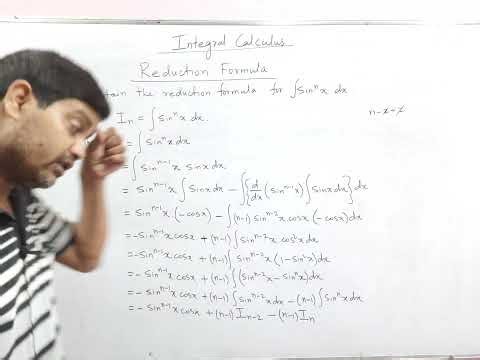 Integral Calculus
Reduction Formula
tain the reduction formula for ∫Sinⁿx dx
Iₙ = ∫Sinⁿx dx.
= ∫Sinⁿx dx
= ∫Sinⁿ⁻¹x sinx dx
= Sinⁿ⁻¹x ∫Sinx dx − ∫{d/dx(Sinⁿ⁻¹x)∫Sinx dx}dx
= Sinⁿ⁻¹x.(−cosx) − ∫(n−1)Sinⁿ⁻²x cosx(−cosx)dx
= −Sinⁿ⁻¹x cosx + (n−1)∫Sinⁿ⁻²x cos²x dx
= −Sinⁿ⁻¹x cosx + (n−1)∫Sinⁿ⁻²x (1−Sin²x)dx
= −Sinⁿ⁻¹x cosx + (n−1)∫(Sinⁿ⁻²x − Sinⁿx)dx
= −Sinⁿ⁻¹x cosx + (n−1)∫Sinⁿ⁻²x dx − (n−1)∫Sinⁿx dx
= −Sinⁿ⁻¹x cosx + (n−1)Iₙ₋₂ − (n−1)Iₙ